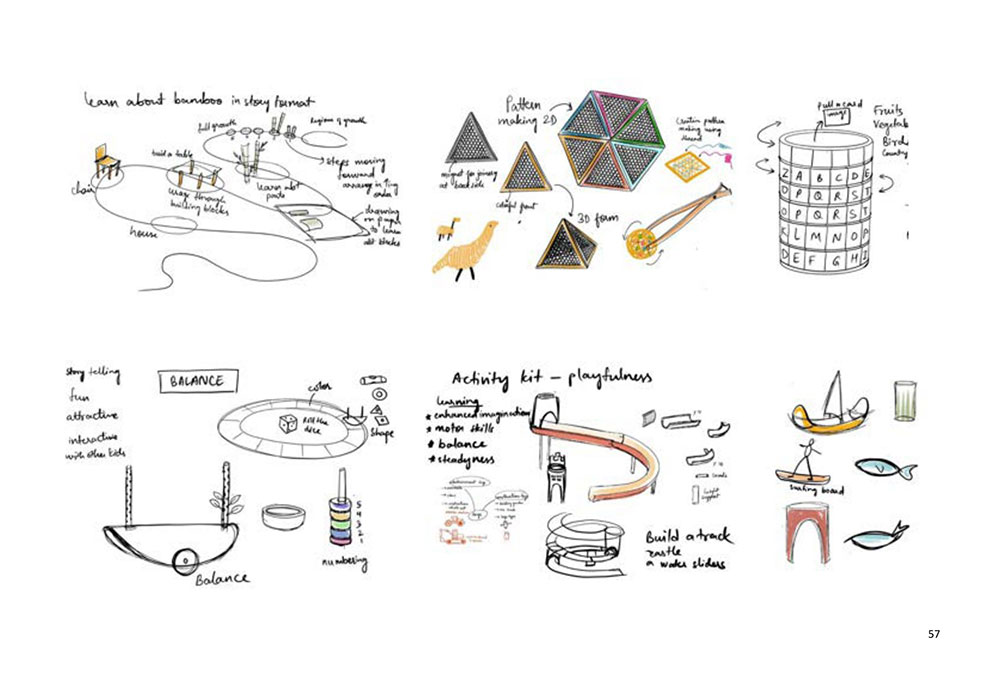 learn about bamboo in story format
full growth
Regions of growth
build a table
steps moving
forward
order
chair
learn abt
parts
way through
building blocks
drawing
on paper
to learn
abt blocks
house
Pattern
making 2D
Creative pattern
making using
thread
magnet for joining
at back side
colorful print
3D form
Pull a card
image
Fruits
Vegetab
Bird
Country
Z A B C D E
O P Q R S T
O P Q R S T
K L M N O P
D E F G H I
Story telling
fun
attractive
interactive
with other kids
BALANCE
color
Roll the
dice
Shape
5
4
3
2
1
numbering
Balance
Activity kit – playfulness
learning
* enhanced imagination
* motor skills
* balance
* steadyness
Build a track
castle
a water sliders
surfing board
57